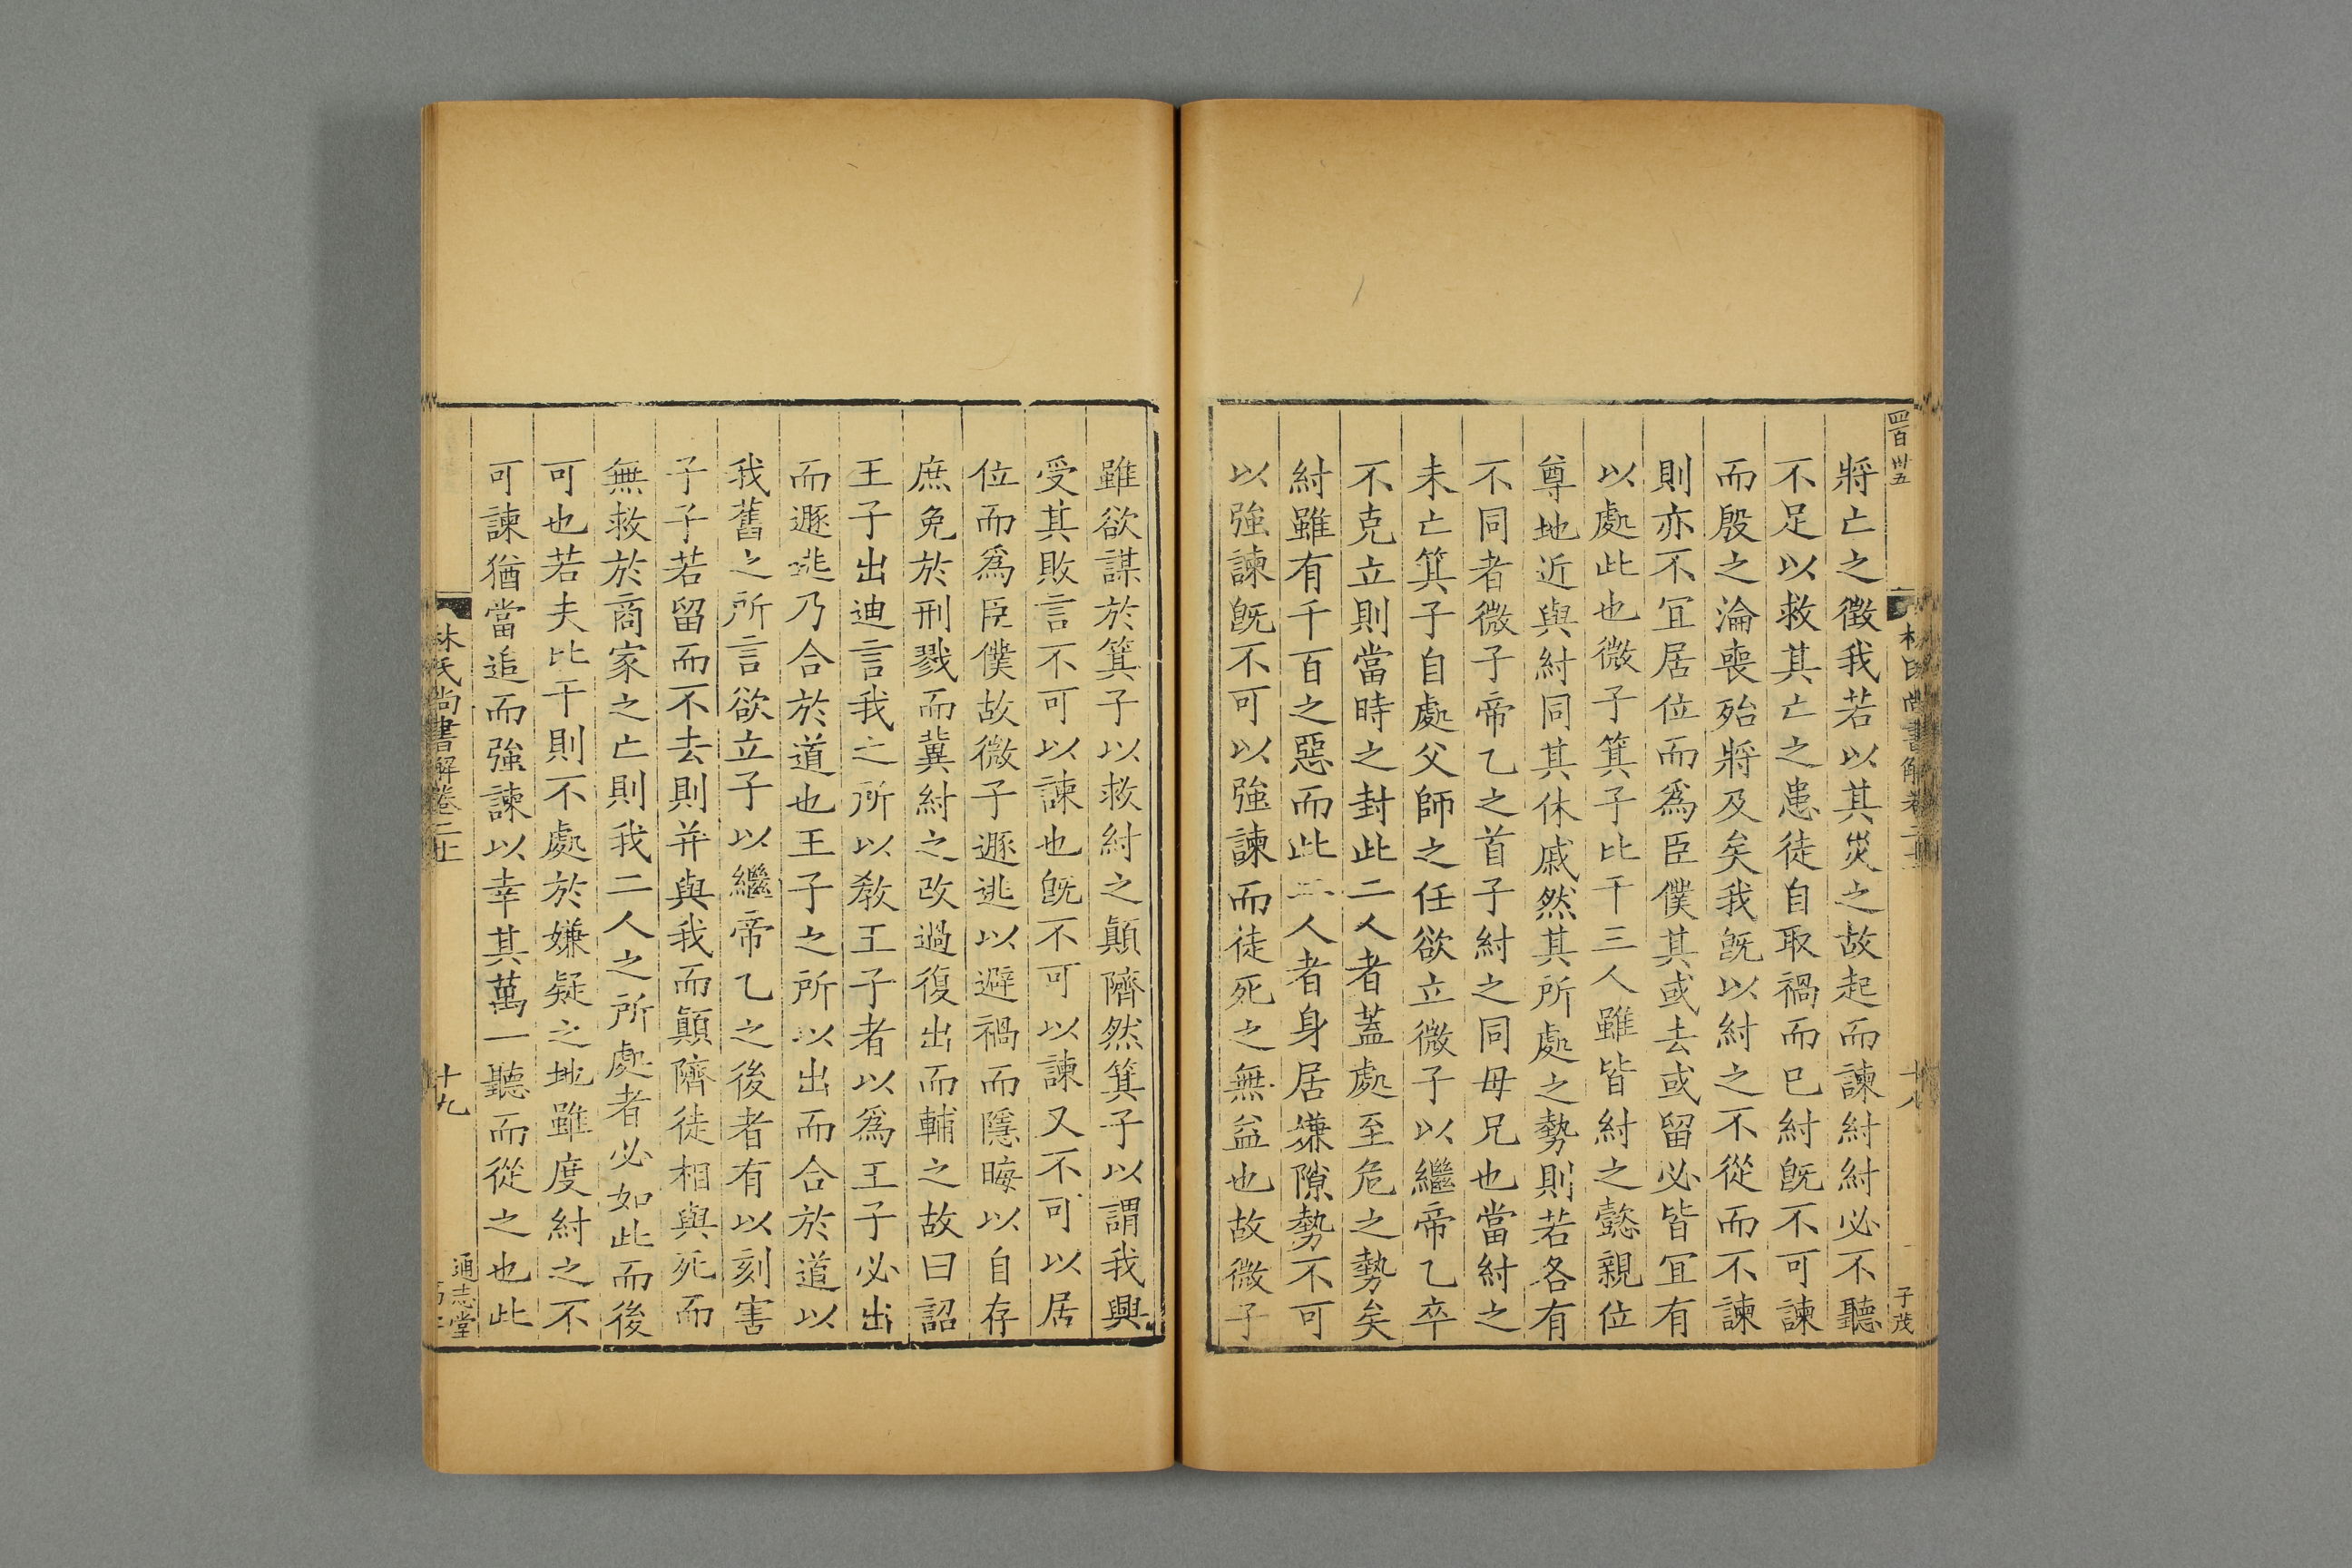 四百卅五
林氏尚書解卷二十
十八
子茂
將亡之徵我若以其災之故起而諫紂紂必不聽
不足以救其亡之患徒自取禍而已紂旣不可諫
而殷之淪喪殆將及矣我旣以紂之不從而不諫
則亦不冝居位而爲臣僕其或去或留必皆冝有
以處此也微子箕子比干三人雖皆紂之懿親位
尊地近與紂同其休戚然其所處之勢則若各有
不同者微子帝乙之首子紂之同母兄也當紂之
未亡箕子自處父師之任欲立微子以繼帝乙卒
不克立則當時之封此二人者蓋處至危之勢矣
紂雖有千百之惡而此二人者身居嫌隙勢不可
以強諫旣不可以強諫而徒死之無益也故微子
雖欲謀於箕子以救紂之顚隮然箕子以謂我興
受其敗言不可以諫也旣不可以諫又不可以居
位而爲臣僕故微子遯逃以避禍而隱晦以自存
庶免於刑戮而冀紂之改過復出而輔之故曰詔
王子出迪言我之所以敎王子者以爲王子必出
而遯逃乃合於道也王子之所以出而合於道以
我舊之所言欲立子以繼帝乙之後者有以刻害
子子若留而不去則并與我而顚隮徒相與死而
無救於商家之亡則我二人之所處者必如此而後
可也若夫比干則不處於嫌疑之地雖度紂之不
可諫猶當追而強諫以幸其萬一聽而從之也此
林氏尚書解卷二十
十九
通志堂